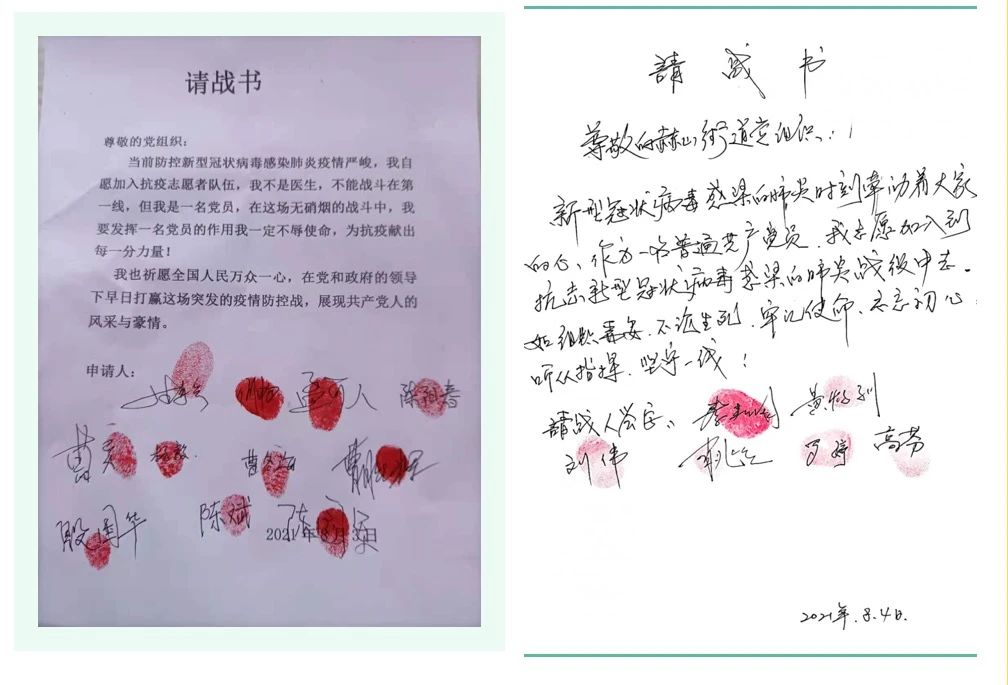 请战书
尊敬的党组织：
当前防控新型冠状病毒感染肺炎疫情严峻，我自
愿加入抗疫志愿者队伍，我不是医生，不能战斗在第
一线，但我是一名党员，在这场无硝烟的战斗中，我
要发挥一名党员的作用我一定不辱使命，为抗疫献出
每一分力量！
我也祈愿全国人民万众一心，在党和政府的领导
下早日打赢这场突发的疫情防控战，展现共产党人的
风采与豪情。
申请人：
殷国华 陈斌
2021年8月3日
請战书
尊敬的赫山街道党组织：
新型冠状病毒感染的肺炎时刻牵动着大家
的心，作为一名普通共产党员，我志愿加入到
抗击新型冠状病毒感染的肺炎战役中去。
如组织需要，不论生死，牢记使命，不忘初心
听从指挥，坚守一线！
請战人签字：
刘伟 罗婷 高芬
2021年.8.4日.